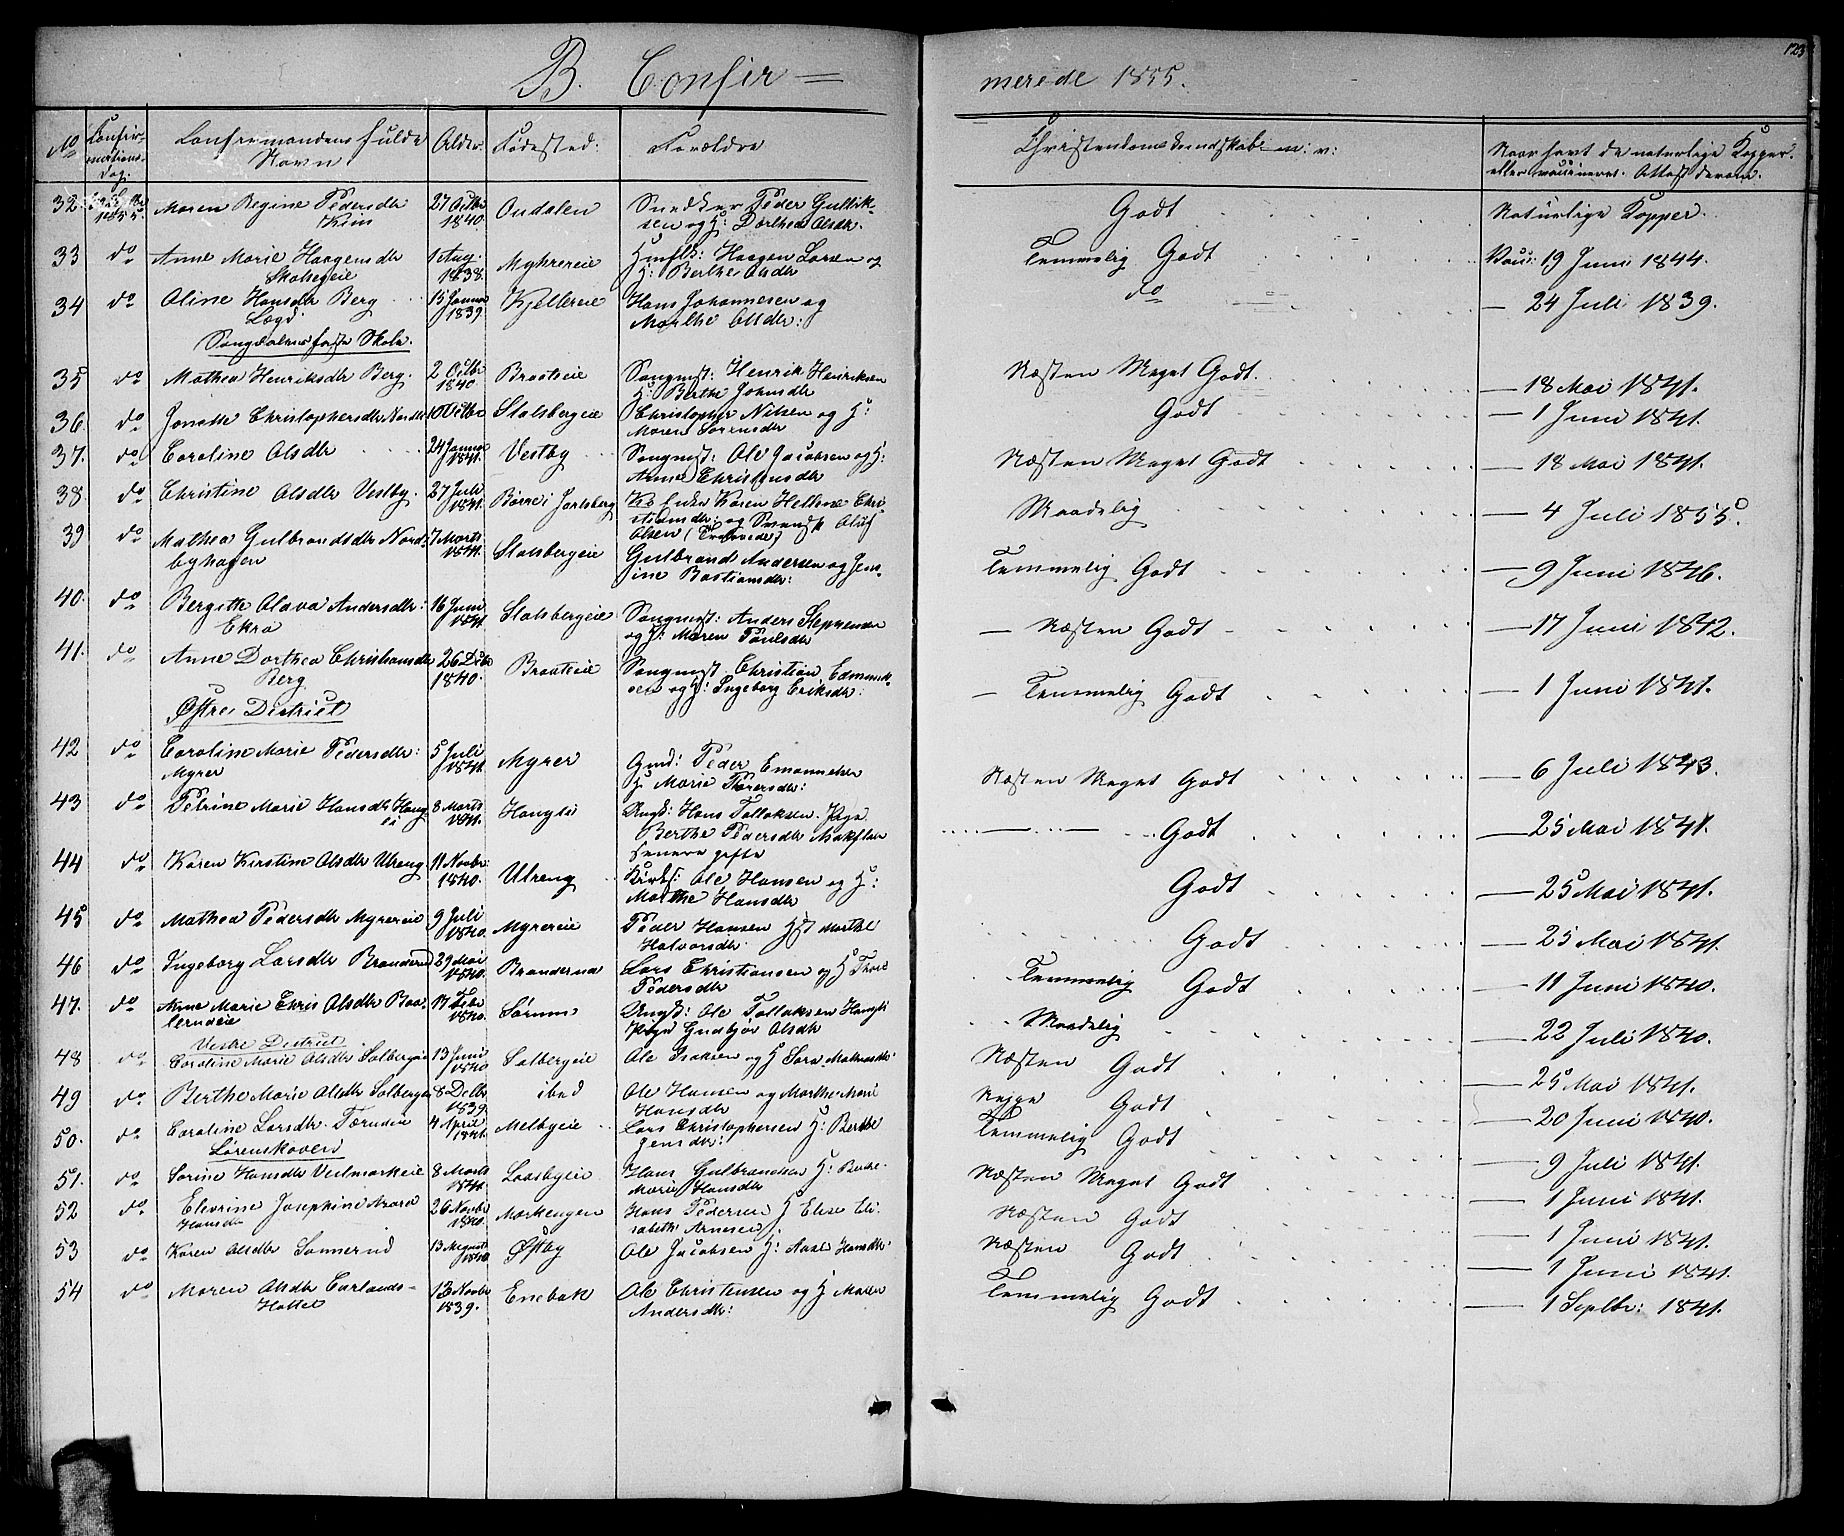 B. Confir=
merede 1855.
123
No
Confir-
mations-
dag.
Confirmandens fulde
Navn
Alder.
Födested:
Forældre
Christendomskundskab m: v:
Naar havt de naturlige Kopper
eller vaccineret. Attest derom.
32. 1855 Maren Regine Pedersdtr 27 Octbr 1840. Ondalen Snedker Peder Gullik-
sen og H: Dorthea Olsdtr. Godt Naturlige Kopper.
33 do Anne Marie Haagensdtr 1 Aug. 1838. Myhrereie Huusm: Haagen Larsen og
H: Berthe Olsdtr Temmelig Godt Vacc: 19 Juni 1844.
34 do Oline Hansdtr Berg 15 Januar 1839 Kjellereie Hans Johannesen og
Lægd. Marthe Olsdtr: do — 24 Juli 1839.
Sangdalens faste Skole.
35 do Mathea Henriksdtr Berg. 2 Octbr 1840. Braateeie Saugmst: Henrik Henriksen
H: Berthe Johnsdtr Næsten Meget Godt. — 18 Mai 1841.
36. do Jonette Christophersdtr Nordb 10 Octbr Stalsbergeie Christopher Nilsen og H:
Maren Sørensdtr Godt — 1 Juni 1841.
37. do Caroline Olsdtr 24 Januar 1841. Vestby Saugmst: Ole Jacobsen og H:
Anne Christensdtr Næsten Meget Godt — 18 Mai 1841.
38. do Christine Olsdtr Vestby. 27 Juli 1841. Borre i Jarlsberg Karen Helene Chri-
stiansdtr. og Svensk Oluf
Olsen Maadelig — 4 Juli 1855.
39 do Mathea Gulbrandsdtr Nord- 7 Marts 1841. Stalsbergeie Gulbrand Andersen og Jen-
byhagen sine Bastiansdtr: Temmelig Godt — 9 Juni 1846.
40. do Bergitte Olava Andersdtr: 16 Juni 1841. Stalsbergeie Saugmst: Anders Steffensen
Ekra og H: Maren Poulsdtr — Næsten Godt — 17 Juni 1842.
41. do Anne Dorthea Christiansdtr 26 Decbr 1840. Braateeie Saugmst Christian Edmund-
Berg. sen og H: Ingeborg Eriksdtr: — Temmelig Godt — 1 Juni 1841.
Østre District
42 do Caroline Marie Pedersdtr: 5 Juli 1841. Myrer Gmd: Peder Emanuelsen
Myrer H: Marie Thoresdtr: Næsten Meget Godt — 6 Juli 1843.
43 do Petrine Marie Hansdtr Haug- 8 Marts 1841. Hauglie Ungk: Hans Tollaksen. Pige
li Berthe Pedersdtr
senere gifte Godt — 25 Mai 1841.
44 do Karen Kirstine Olsdtr Utreng 11 Novbr 1840. Utreng Ole Hansen og H:
Marthe Hansdtr Godt — 25 Mai 1841.
45 do Mathea Pedersdtr Myrereie 9 Juli 1840. Myrereie Peder Hansen Hst Marthe
Halvorsdtr. Godt — 25 Mai 1841.
46 do Ingeborg Larsdtr Branderud 29 Mai 1840. Branderud Lars Christiansen og H Thore
Pedersdtr Temmelig Godt — 11 Juni 1840.
47. do Anne Marie Chris Olsdtr Baa- 17 Febr 1840. Sørum Ungk: Ole Tollaksen Haugli
lerudeie Pige Gudbjør Olsdtr Maadelig — 22 Juli 1840.
Vestre District
48 do Caroline Marie Olsdtr Solbergeie 13 Juni 1840 Solbergeie Ole Isaksen og H Sara Mathisdtr: Næsten Godt — 25 Mai 1841.
49 do Berthe Marie Olsdtr Solbergeie 8 Decbr 1839. ibid Ole Hansen og Marthe Mari
Hansdtr Neppe Godt — 20 Juni 1840.
50. do Caroline Larsdtr. Tærudeie 4 April 1841. Melbyeie Lars Christophersen H: Berthe
Jensdtr: Temmelig Godt — 9 Juli 1841.
Lørenskoven
51. do Sorine Hansdtr Veilmarkeie 8 Marts 1841. Losbyeie Hans Gulbrandsen H: Berthe
Marie Hansdtr Næsten Meget Godt — 1 Juni 1841.
52 do Elevrine Josephine Maria 26 Novbr 1840. Mørkengen Hans Pedersen H Elise Eli-
Hansdtr sabeth Arnesen Næsten Godt — 1 Juni 1841.
53 do Karen Olsdtr Sønnerud 13 August 1840 Østby Ole Jacobsen H: Aase Hansdtr: Næsten Godt — 1 Juni 1841.
54 do Maren Olsdtr Carlands- 13 Novbr 1839. Enebak Ole Christensen og H Maren
Hottel Andersdtr: Temmelig Godt — 1 Septbr: 1841.